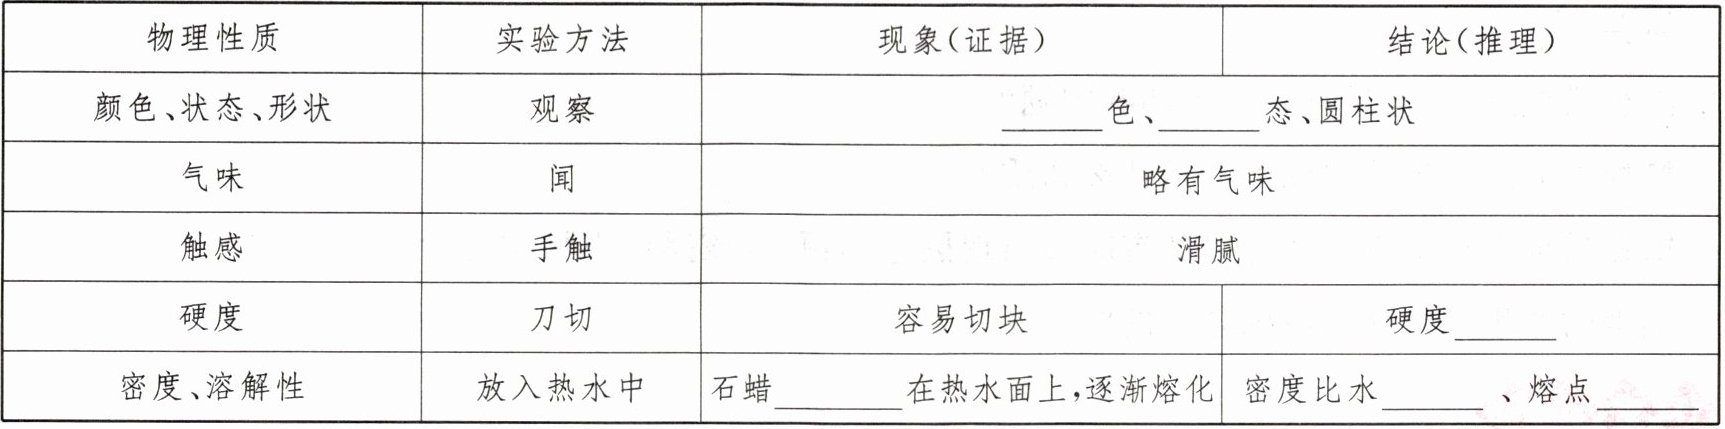 物理性质 实验方法 现象(证据) 结论(推理)
颜色、状态、形状 观察 ______色、______态、圆柱状
气味 闻 略有气味
触感 手触 滑腻
硬度 刀切 容易切块 硬度______
密度、溶解性 放入热水中 石蜡________在热水面上,逐渐熔化 密度比水______、熔点______